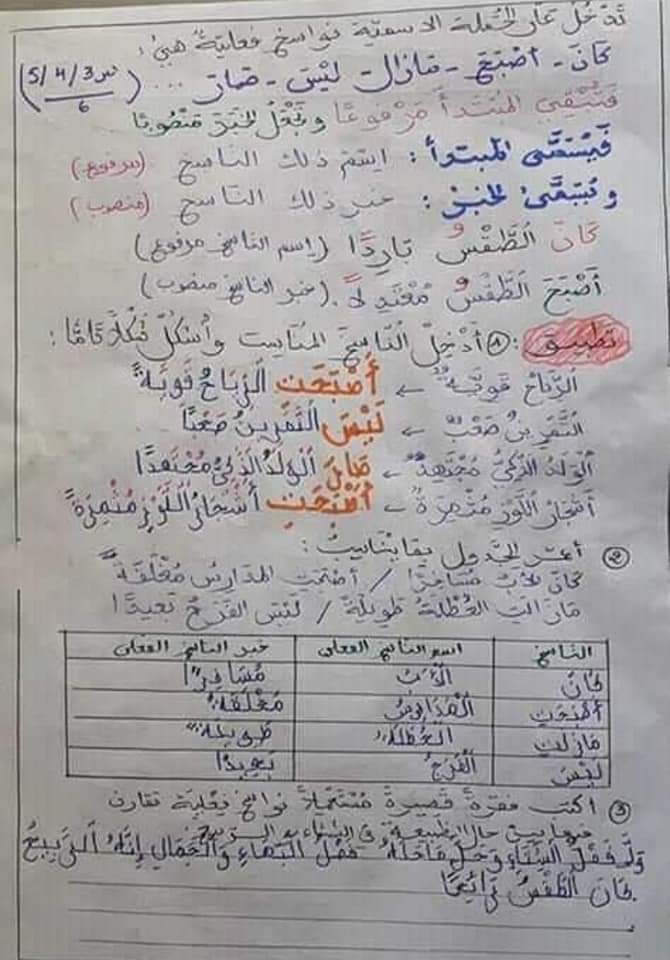 تَدْخُلُ عَلَى الجُمْلَةِ الاسمِيَّةِ نَوَاسِخٌ فِعْلِيَّةٌ هِيَ :
كَانَ - أَصْبَحَ - مَازَالَ - لَيْسَ - صَارَ ... (س 3/4/5/6)
فَتُبْقِي المُبْتَدَأَ مَرْفُوعًا وتَجْعَلُ الخَبَرَ مَنْصُوبًا
فَيُسَمَّى المُبتدأ : اسْمَ ذلك النّاسخ (مرفوع)
و يُسَمَّى الخبرُ : خبر ذلك النّاسخ (منصوب)
كَانَ الطَّقْسُ بَارِدًا (إسم الناسخ مرفوع)
أَصْبَحَ الطَّقْسُ مُعْتَدِلاً. (خبر الناسخ منصوب)
تطبيق : 1 أَدْخِلُ النّاسِخَ المُنَاسِبَ وأُشْكُلُ شَكْلاً تَامًّا :
الرِّيَاحُ قَوِيَّةٌ ← أَصْبَحَتِ الرِّيَاحُ قَوِيَةً
التَّمْرِينُ صَعْبٌ ← لَيْسَ التَّمْرِينُ صَعْبًا
الوَلَدُ الذَّكِيُّ مُجْتَهِدٌ ← صَارَ الوَلَدُ الذَّكِيُّ مُجْتَهِدًا
أَشْجَارُ اللَّوْزِ مُثْمِرَةٌ ← أَصْبَحَتْ أَشْجَارُ اللَّوْزِ مُثْمِرَةً
2 أعمّر الجدول بمَا يُنَاسِبُ :
كَانَ الأَبُ مُسَافِرًا / أَصْبَحَتِ المَدَارِسُ مُغْلَقَةً
مَازَالَتِ العُطْلَةُ طَوِيلَةً / لَيْسَ الفَرَجُ بَعِيدًا
النّاسخ | اسم الناسخ الفعلي | خبر الناسخ الفعلي
كَانَ | الأَبُ | مُسَافِرًا
أصْبَحَتِ | الْمَدَارِسُ | مُغْلَقَةً
مَازلت | العُطْلَةُ | طَوِيلَةً
لَيْسَ | الْفَرَجُ | بَعِيدًا
3 أكتب فقرةً قَصِيرةً مُسْتَعْمِلاً نواسخ فِعْلِيَّة تقارن
فيها بين حال الطبيعة في الشتاء و الربيع
وَلَّى فَصْلُ الشِّتَاءِ وَحَلَّ مَحَلَّهُ فَصْلُ البَهَاءِ وَالْجَمَالِ إِنَّهُ الرَّبِيعُ
كَانَ الطَّقْسُ رَائِعًا